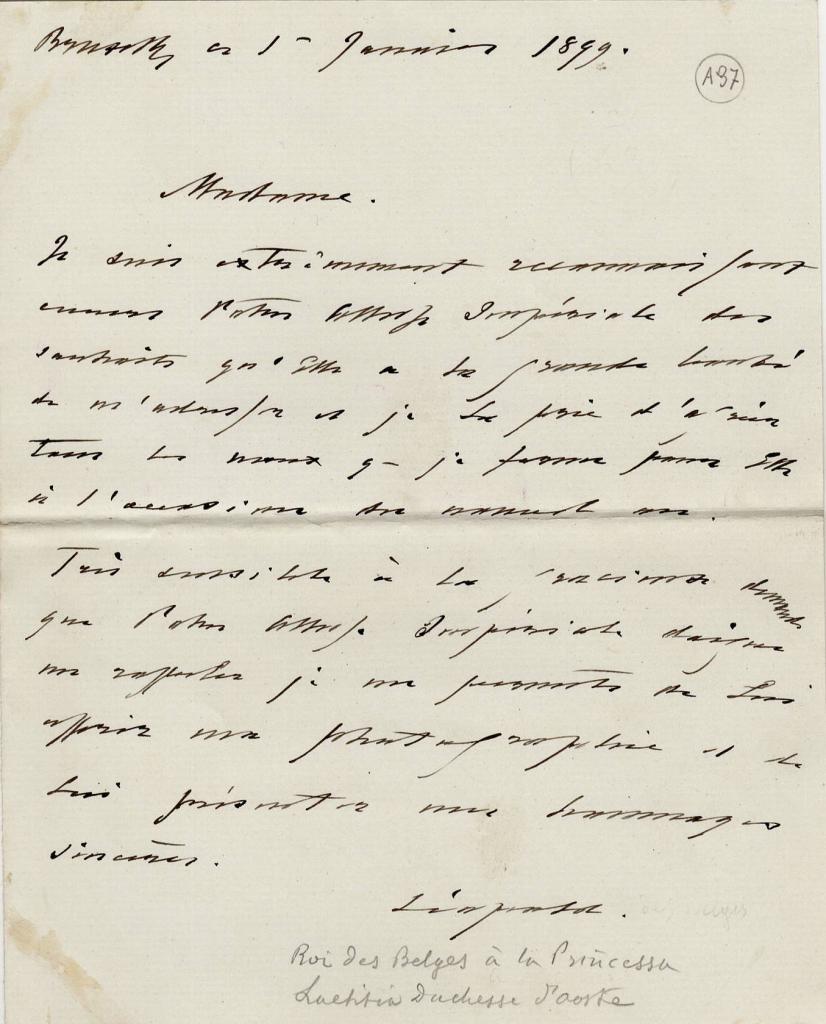 Bruxelles ce 1 Janvier 1899.
A97
Madame.
Je suis extrêmement reconnaissant
envers Votre Altesse Impériale des
souhaits qu'Elle a la grande bonté
de m'adresser et je La prie d'agréer
tous les vœux que je forme pour Elle
à l'occasion du nouvel an.
Très sensible à la gracieuse demande
que Votre Altesse Impériale daigne
me rappeler je me permets de Lui
offrir ma photographie et de
Lui présenter mes hommages
sincères.
Léopold.
Roi des Belges à la Princessa
Laetitia Duchesse d'aoste